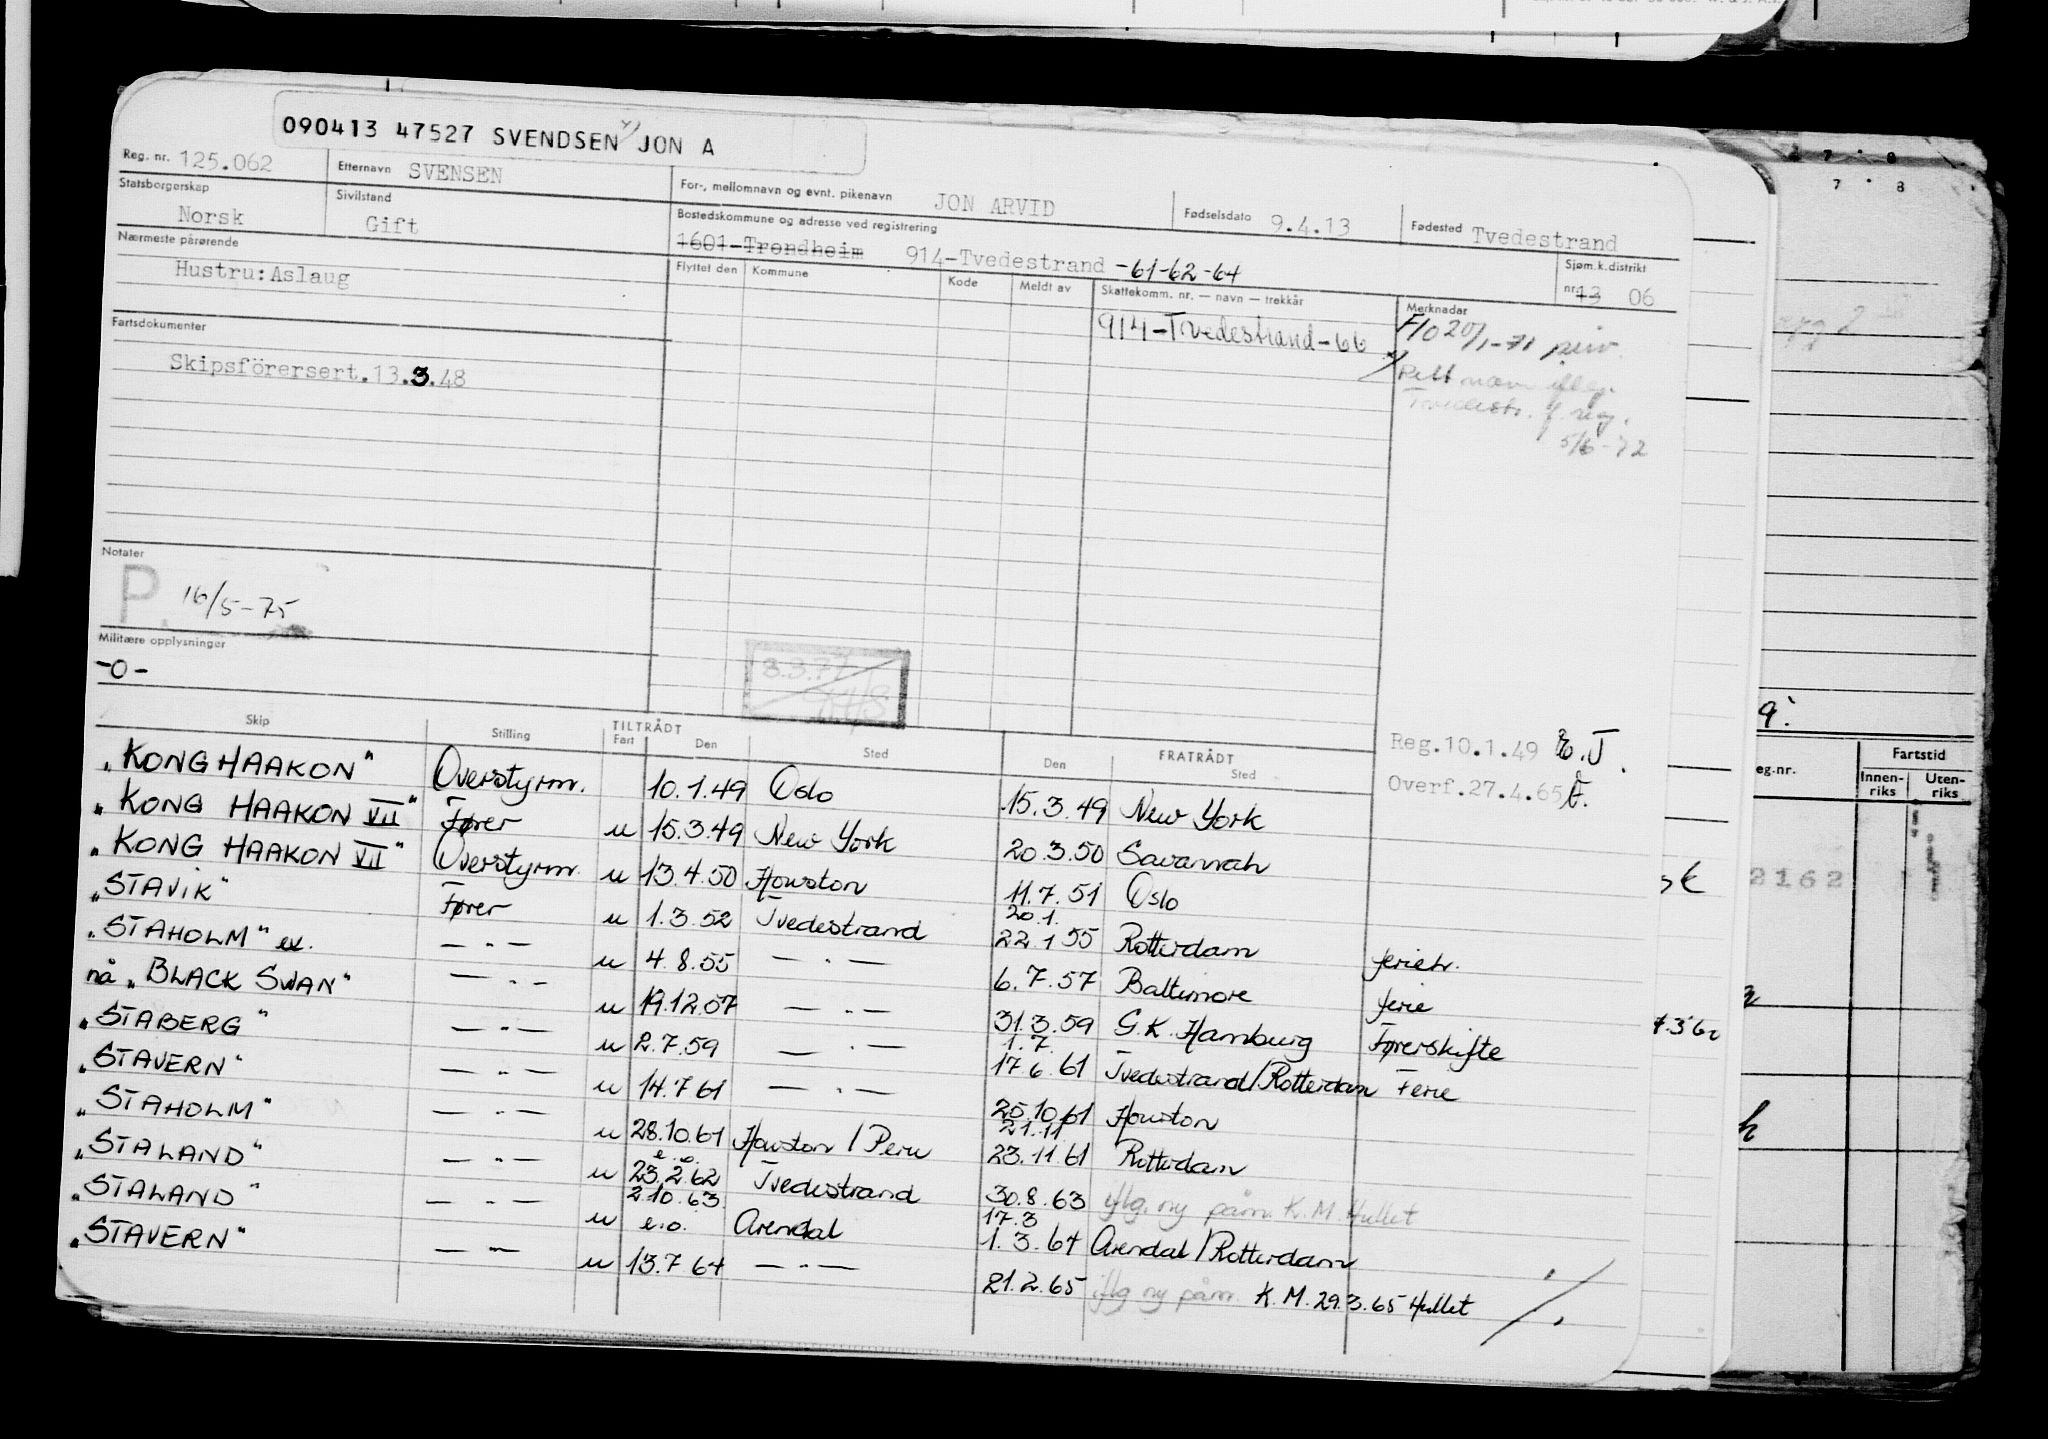 090413 47527 SVENDSEN JON A
Reg. nr. 125.062 Etternavn SVENSEN For-, mellomnavn og evnt. pikenavn JON ARVID Fødselsdato 9.4.13 Fødested Tvedestrand
Statsborgerskap Norsk Sivilstand Gift Bostedskommune og adresse ved registrering 1601-Trondheim 914-Tvedestrand -61-62-64 Sjøm.k.distrikt nr. 13 06
Nærmeste pårørende Flyttet den Kommune Kode Meldt av Skattekomm. nr. — navn — trekkår Merknader
Hustru: Aslaug
914-Tvedestrand-66 F/O 20/1-71
Rett navn iflg.
Tvedestr. f. reg.
5/6-72
Fartsdokumenter
Skipsförersert.13.3.48
Notater
P. 16/5-75
Militære opplysninger
-0-
3.3.77
Skip Stilling TILTRÅDT Fart Den Sted FRATRÅDT Den Sted
Reg.10.1.49
Overf.27.4.65
"KONG HAAKON" Overstyrm. 10.1.49 Oslo 15.3.49 New York
"KONG HAAKON VII" Fører u 15.3.49 New York 20.3.50 Savannah
"KONG HAAKON VII" Overstyrm. u 13.4.50 Houston 11.7.51 Oslo
"STAVIK" Fører u 1.3.52 Tvedestrand 20.1. 22.1 55 Rotterdam ferietr.
"STAHOLM" ex. — " — u 4.8.55 — " — 6.7.57 Baltimore ferie
nå "BLACK SWAN" — " — u 19.12.57 — " — 31.3.59 G.K. Hamburg Førerskifte
"STABERG" — " — u 2.7.59 — " — 1.7. 17.6.61 Tvedestrand/Rotterdam Ferie
"STAVERN" — " — u 14.7.61 — " — 25.10.61 Houston
"STAHOLM" — " — u 28.10.61 Houston / Peru 21.11 23.11.61 Rotterdam
"STALAND" — " — u e.o. 23.2.62 Tvedestrand 30.8.63 iflg. ny påm. K.M. Hullet
"STALAND" — " — u 2.10.63 e.o. Arendal 17.3 1.3.64 Arendal/Rotterdam
"STAVERN" — " — u 13.7.64 — " — 21.2.65 iflg ny påm. K.M. 29.3.65 Hullet
7 8
7 8
eg.nr. Fartstid
Innen-riks Uten-riks
2162